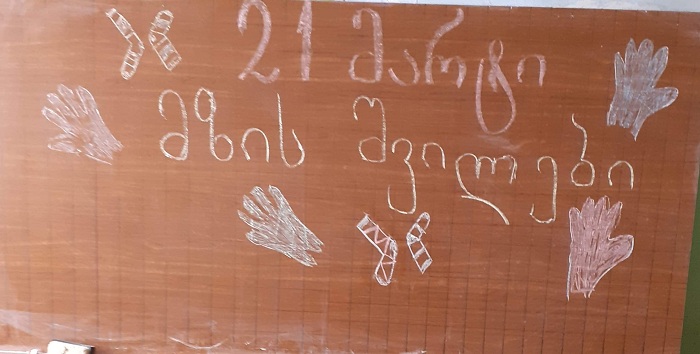 21 მარტი
მზის შვილები